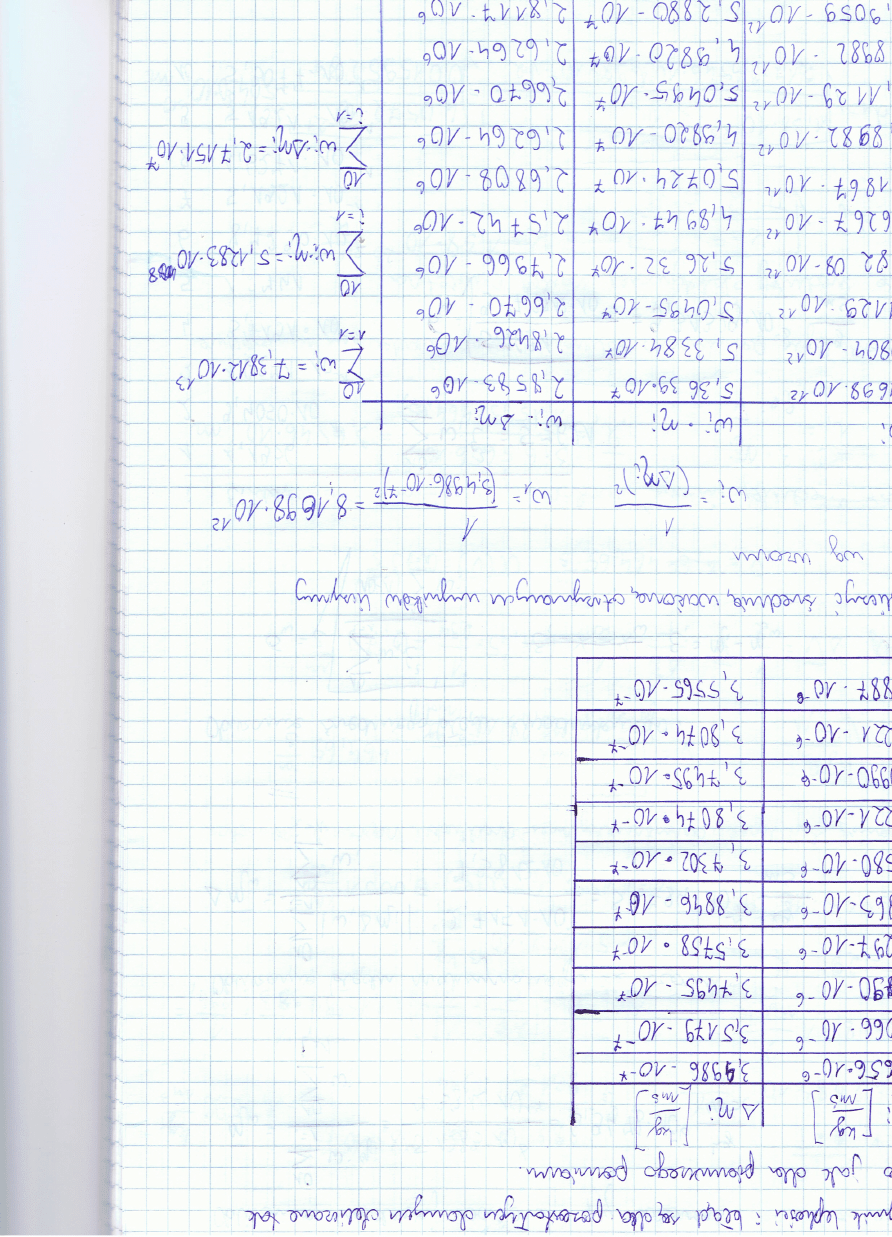 lepkości i błąd są dla pozostałych danych obliczane tak
jak dla pierwszego pomiaru.
[kg/ms] Δηi [kg/ms]
656·10^-6 3,4986 · 10^-7
066 · 10^-6 3,5179 · 10^-7
890 · 10^-6 3,7495 · 10^-7
297 · 10^-6 3,5758 · 10^-7
863 · 10^-6 3,8846 · 10^-7
580 · 10^-6 3,7302 · 10^-7
221 · 10^-6 3,8074 · 10^-7
990 · 10^-6 3,7495 · 10^-7
221 · 10^-6 3,8074 · 10^-7
887 · 10^-6 3,5565 · 10^-7
średnią ważoną otrzymanych wyników liczymy
wg wzoru
wi = 1/(Δηi)² w1 = 1/(3,4986·10^-7)² = 8,1698·10^12
wi · ηi wi · Δηi
1698·10^12 5,3639·10^7 2,8583 · 10^6
804 · 10^12 5,3384·10^7 2,8426 · 10^6
1129 · 10^12 5,0495 · 10^7 2,6670 · 10^6
8208 · 10^12 5,2632 · 10^7 2,7966 · 10^6
6267 · 10^12 4,8947 · 10^7 2,5742 · 10^6
1867 · 10^12 5,0724 · 10^7 2,6808 · 10^6
8982 · 10^12 4,9820 · 10^7 2,6264 · 10^6
,1129 · 10^12 5,0495 · 10^7 2,6670 · 10^6
8982 · 10^12 4,9820 · 10^7 2,6264 · 10^6
,9059 · 10^12 5,2880 · 10^7 2,8117 · 10^6
∑ wi = 7,3812·10^13
∑ wi·ηi = 5,1283·10^8
∑ wi·Δηi = 2,7151·10^7